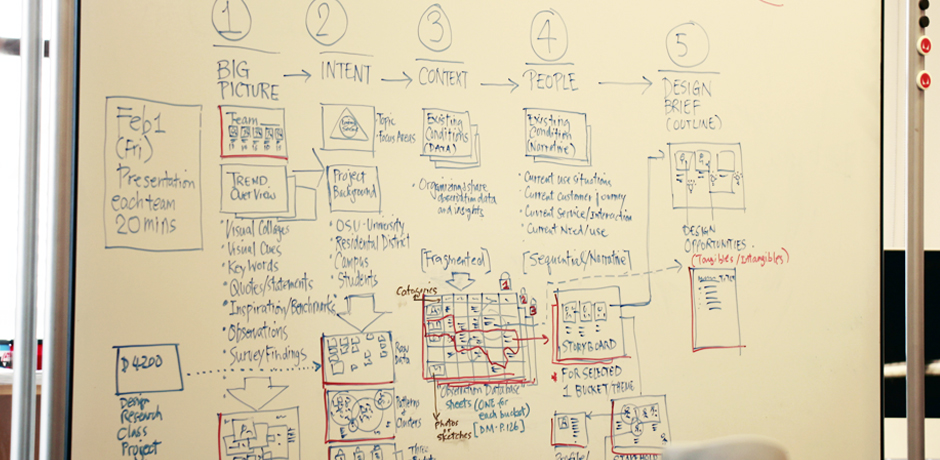 1
2
3
4
5
BIG
PICTURE
INTENT
CONTEXT
PEOPLE
DESIGN
BRIEF
(OUTLINE)
Feb 1
(Fri)
Presentation
each team
20 mins
Team
TREND
OverView
• Visual Collages
• Visual Cues
• Key Words
• Quotes/statements
• Inspiration/Benchmarks
• Observations
• Survey Findings
Topic
• Focus Areas
Project
Background
• OSU-University
• Residental District
• Campus
• Students
Raw
Data
Patterns +
Clusters
Three
Existing
Conditions
(DATA)
• Organizing/share
observation data
and insights
[Fragmented]
Categories
Observation Database
sheets (ONE for
each bucket)
[DM-P.126]
photos
sketches
Existing
Condition
(Narrative)
• Current use situations
• Current Customer Journey
• Current Service/Interaction
• Current Need/use
[Sequential/Narrative]
1
2
3
STORYBOARD
FOR SELECTED
1 BUCKET THEME
Profile/
DESIGN
OPPORTUNITIES
(Tangibles/Intangibles)
D4200
Design
Research
Class
Project